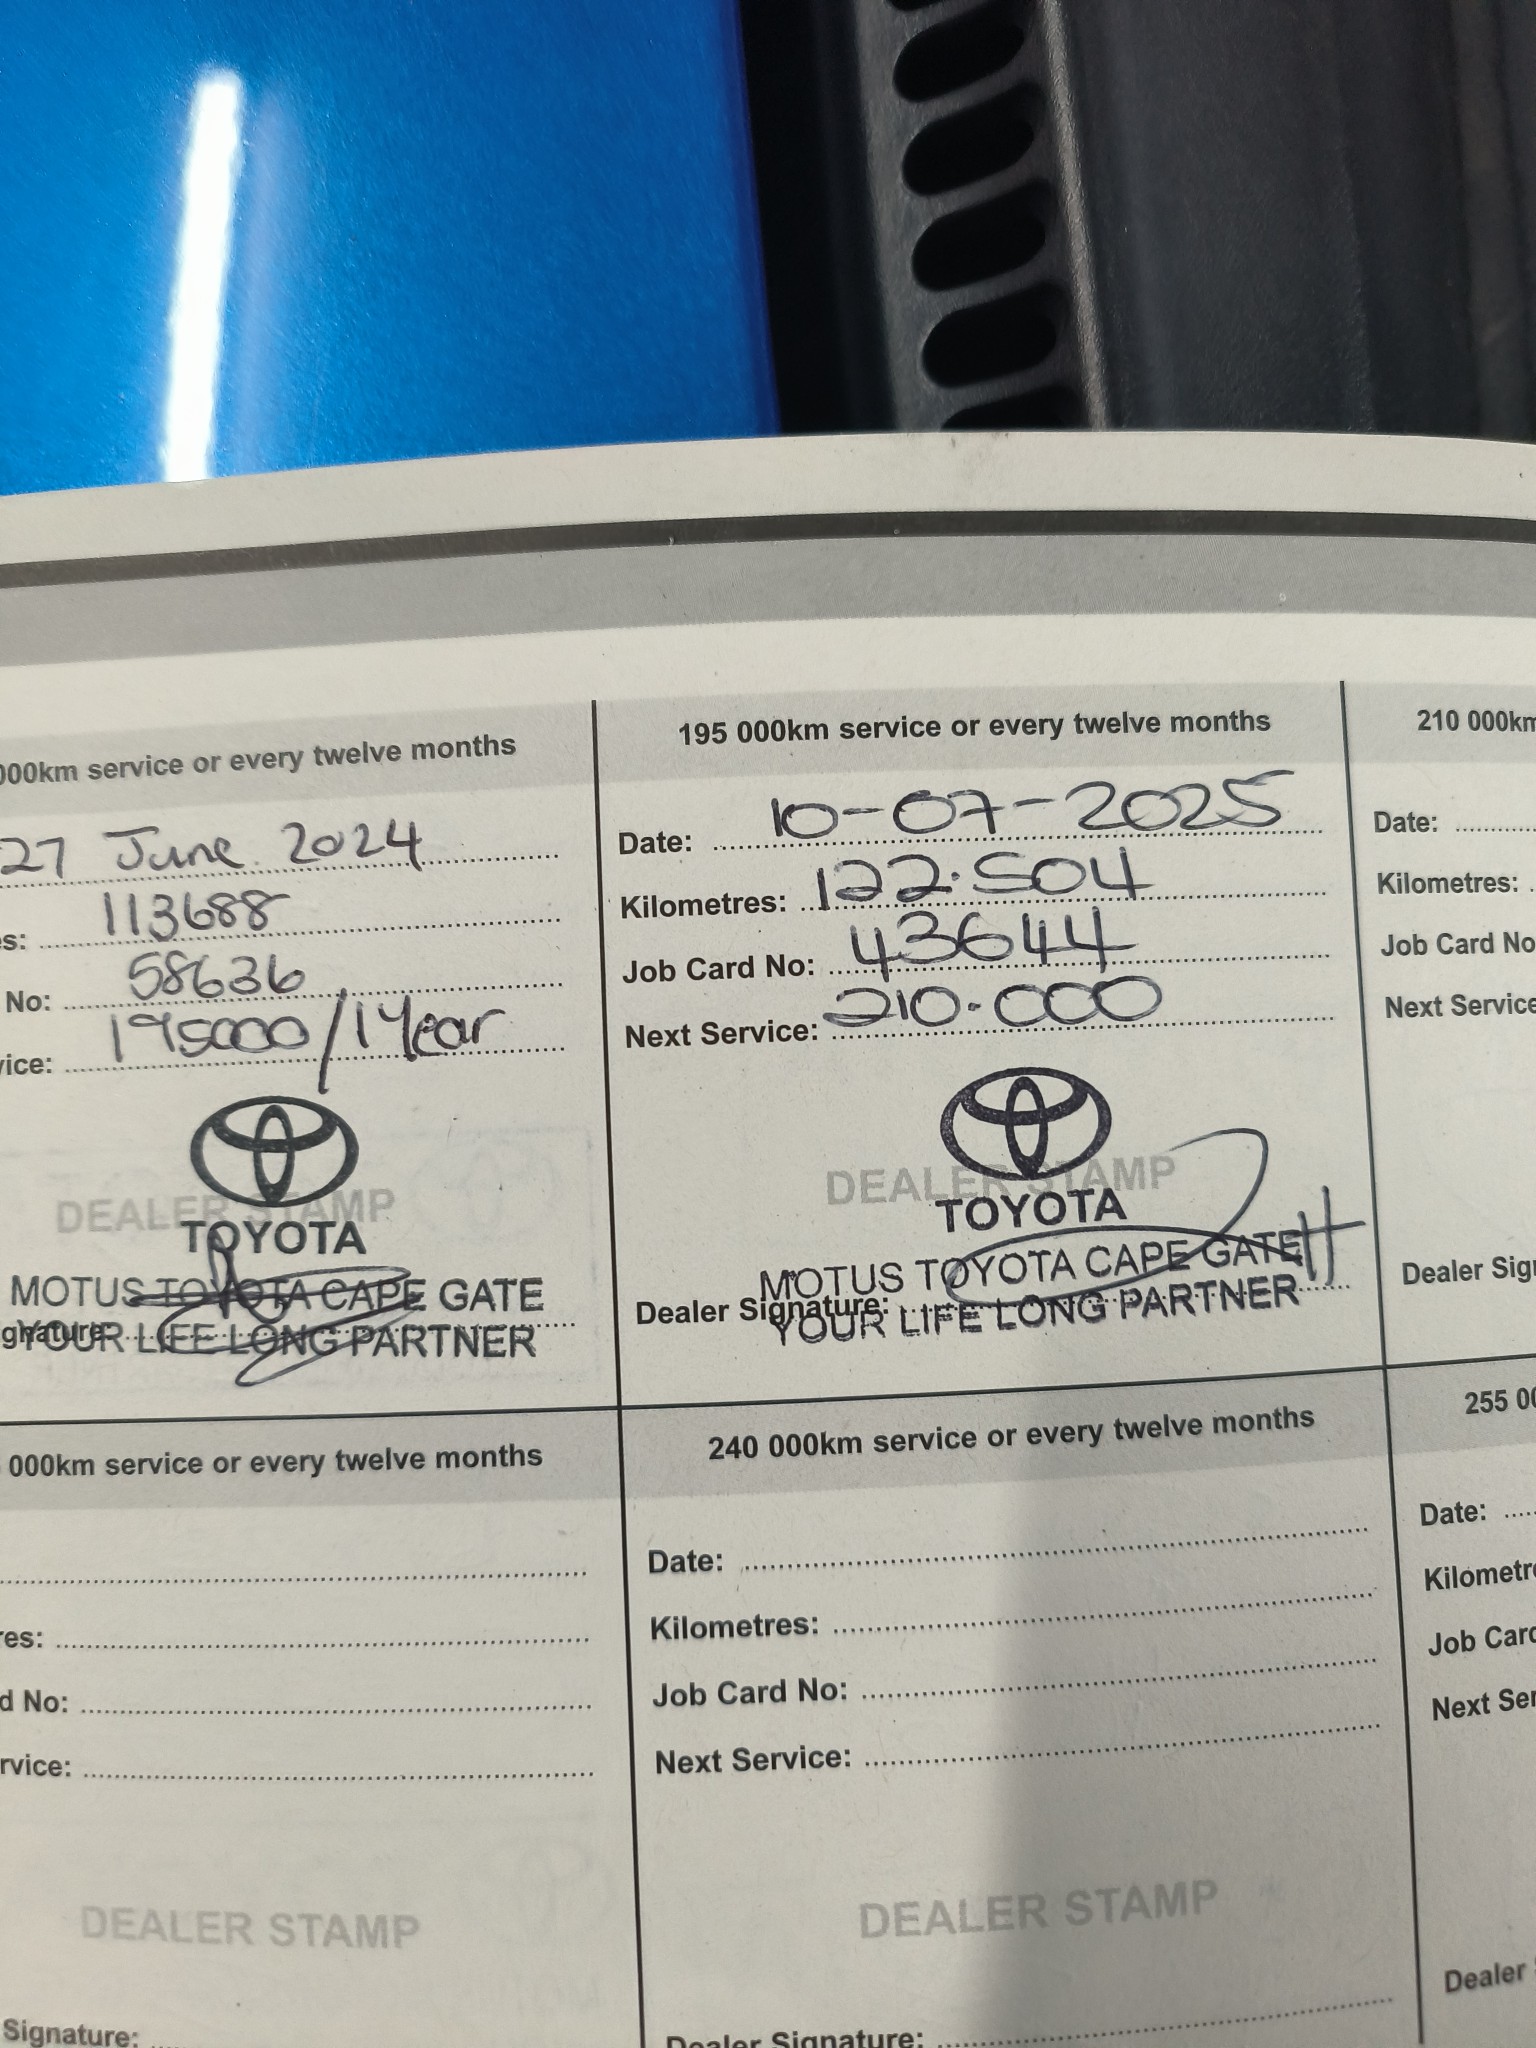 000km service or every twelve months
27 June 2024
es: 113688
No: 58636
vice: 195000/1Year
DEALER STAMP
TOYOTA
MOTUS TOYOTA CAPE GATE
gnature:
YOUR LIFE LONG PARTNER
195 000km service or every twelve months
Date: 10-07-2025
Kilometres: 122.504
Job Card No: 43644
Next Service: 210.000
DEALER STAMP
TOYOTA
MOTUS TOYOTA CAPE GATE
Dealer Signature:
YOUR LIFE LONG PARTNER
210 000km
Date:
Kilometres:
Job Card No
Next Service
Dealer Sig
000km service or every twelve months
res:
d No:
rvice:
DEALER STAMP
Signature:
240 000km service or every twelve months
Date:
Kilometres:
Job Card No:
Next Service:
DEALER STAMP
Dealer Signature:
255 00
Date:
Kilometre
Job Card
Next Ser
Dealer